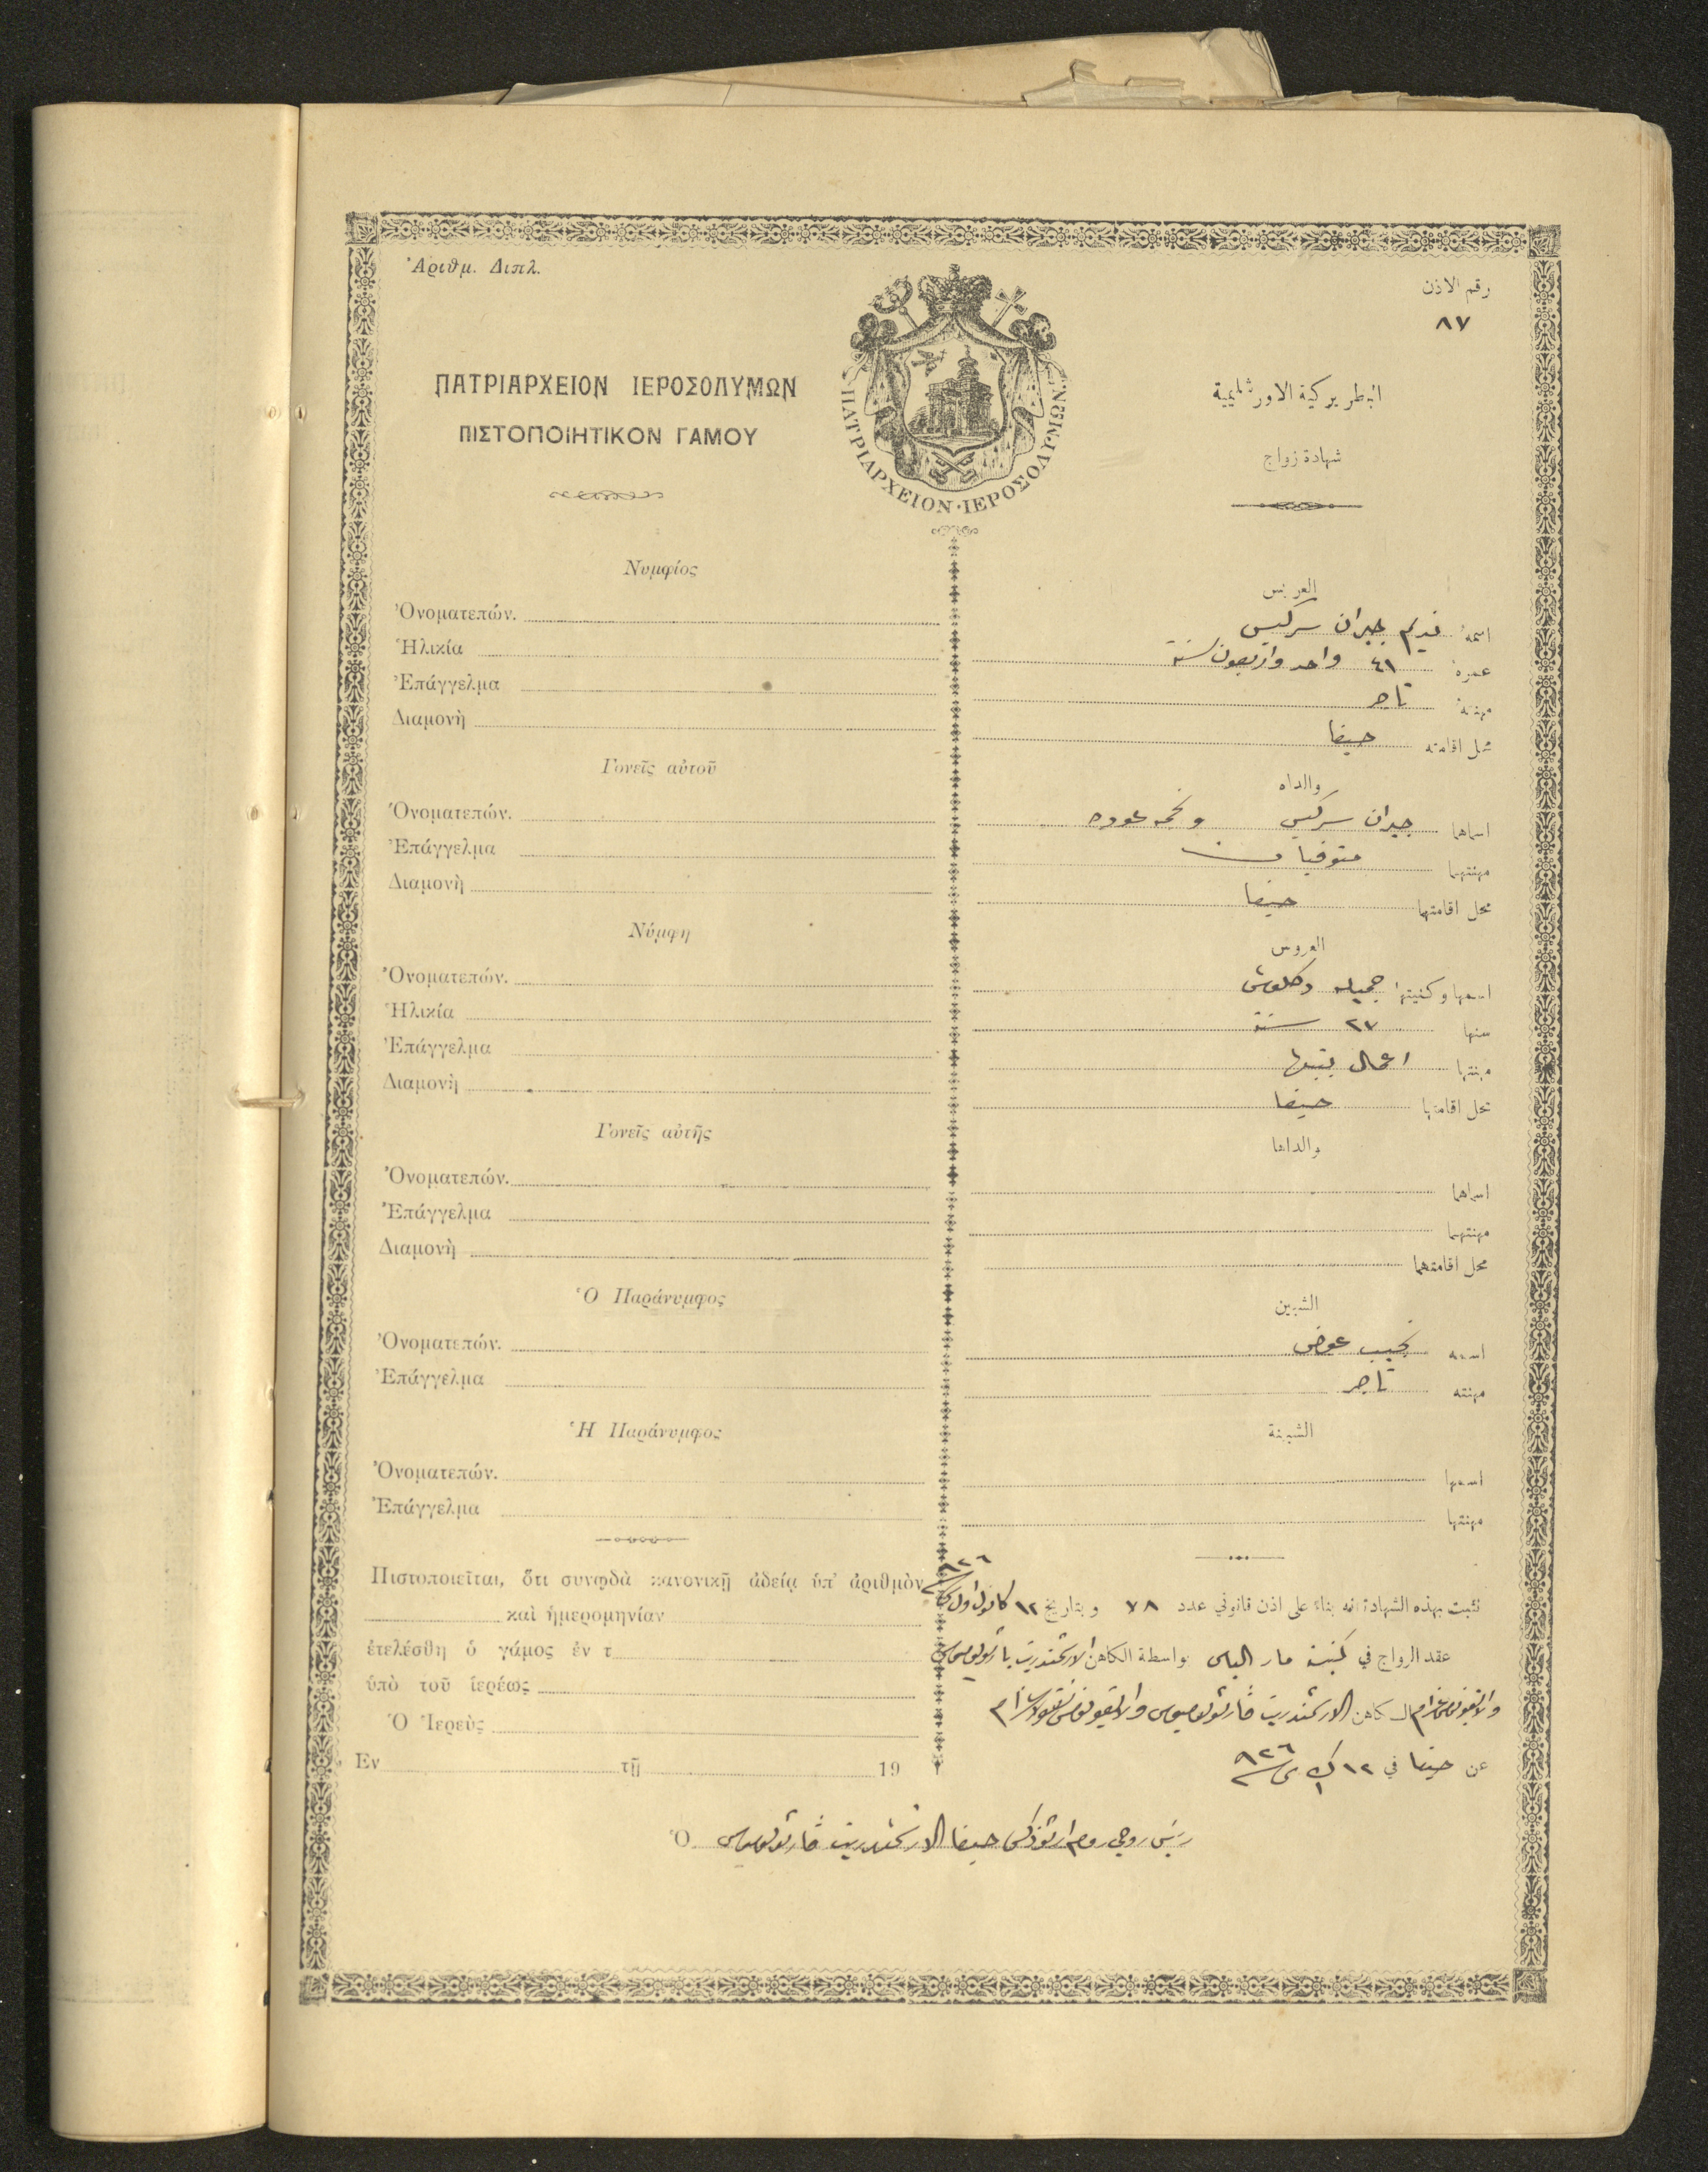 Ἀριθμ. Διπλ.
رقم الاذن
٨٧
ΠΑΤΡΙΑΡΧΕΙΟΝ ΙΕΡΟΣΟΛΥΜΩΝ
ΠΙΣΤΟΠΟΙΗΤΙΚΟΝ ΓΑΜΟΥ
ΠΑΤΡΙΑΡΧΕΙΟΝ·ΙΕΡΟΣΟΛΥΜΩΝ
البطريركية الاورشليمية
شهادة زواج
Νυμφίος
Ὀνοματεπών.
Ἡλικία
Ἐπάγγελμα
Διαμονὴ
Γονεῖς αὐτοῦ
Ὀνοματεπών.
Ἐπάγγελμα
Διαμονὴ
Νύμφη
Ὀνοματεπών.
Ἡλικία
Ἐπάγγελμα
Διαμονὴ
Γονεῖς αὐτῆς
Ὀνοματεπών.
Ἐπάγγελμα
Διαμονὴ
Ὁ Παράνυμφος
Ὀνοματεπών.
Ἐπάγγελμα
Ἡ Παράνυμφος
Ὀνοματεπών.
Ἐπάγγελμα
Πιστοποιεῖται, ὅτι συνῳδὰ κανονικῇ ἀδείᾳ ὑπ' ἀριθμὸν
καὶ ἡμερομηνίαν
ἐτελέσθη ὁ γάμος ἐν τ
ὑπὸ τοῦ ἱερέως
Ὁ Ἱερεὺς
Ἐν τῇ 19
العريس
اسمه نديم جبران سركيس
عمره ٤١ واحد واربعون سنة
مهنته تاجر
محل اقامته حيفا
والداه
اسماهما جبران سركيس ونجمه عوده
مهنتهما متوفيان
محل اقامتهما حيفا
العروس
اسمها وكنيتها جميله
سنها ٢٧ سنة
مهنتها اعمال بيتها
محل اقامتها حيفا
والداها
اسماهما
مهنتهما
محل اقامتهما
الشبين
اسمه نجيب عوض
مهنته تاجر
الشبينة
اسمها
مهنتها
نثبت بهذه الشهادة انه بناء على اذن قانوني عدد ٧٨ وبتاريخ ١٢ كانون اول ٩٢٦
عقد الزواج في كنيسة مار الياس بواسطة الكاهن الارشمندريت
الكاهن الارشمندريت
عن حيفا في ١٢ ك١ ٩٢٦
Ὁ رئيس روحي روم ارثوذكس حيفا الارشمندريت